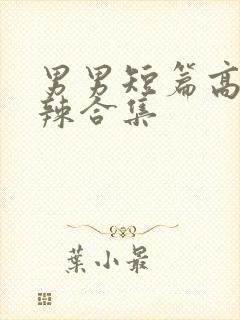 男男短篇高
辣合集
葉小最